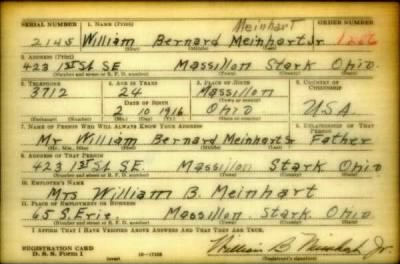 SERIAL NUMBER 1. NAME (Print) Meinhart ORDER NUMBER
2145 William Bernard Meinhart Jr. 1266
(First) (Middle) (Last)
2. ADDRESS (Print)
423 1st St SE Massillon Stark Ohio.
(Number and street or R. F. D. number) (Town) (County) (State)
3. TELEPHONE 4. AGE IN YEARS 5. PLACE OF BIRTH 6. COUNTRY OF CITIZENSHIP
3712 24 Massillon
DATE OF BIRTH (Town or county)
2 10 1916 Ohio USA
(Mo.) (Day) (Yr.) (State or country)
7. NAME OF PERSON WHO WILL ALWAYS KNOW YOUR ADDRESS 8. RELATIONSHIP OF THAT PERSON
Mr William Bernard Meinhart Sr Father
(Mr., Mrs., Miss) (First) (Middle) (Last)
9. ADDRESS OF THAT PERSON
423 1st St S.E. Massillon Stark Ohio
(Number and street or R. F. D. number) (Town) (County) (State)
10. EMPLOYER'S NAME
Mrs William B. Meinhart
11. PLACE OF EMPLOYMENT OR BUSINESS
65 S. Erie Massillon. Stark Ohio.
(Number and street or R. F. D. number) (Town) (County) (State)
I AFFIRM THAT I HAVE VERIFIED ABOVE ANSWERS AND THAT THEY ARE TRUE.
REGISTRATION CARD
D. S. S. FORM 1 William B Meinhart Jr.
(Registrant's signature)